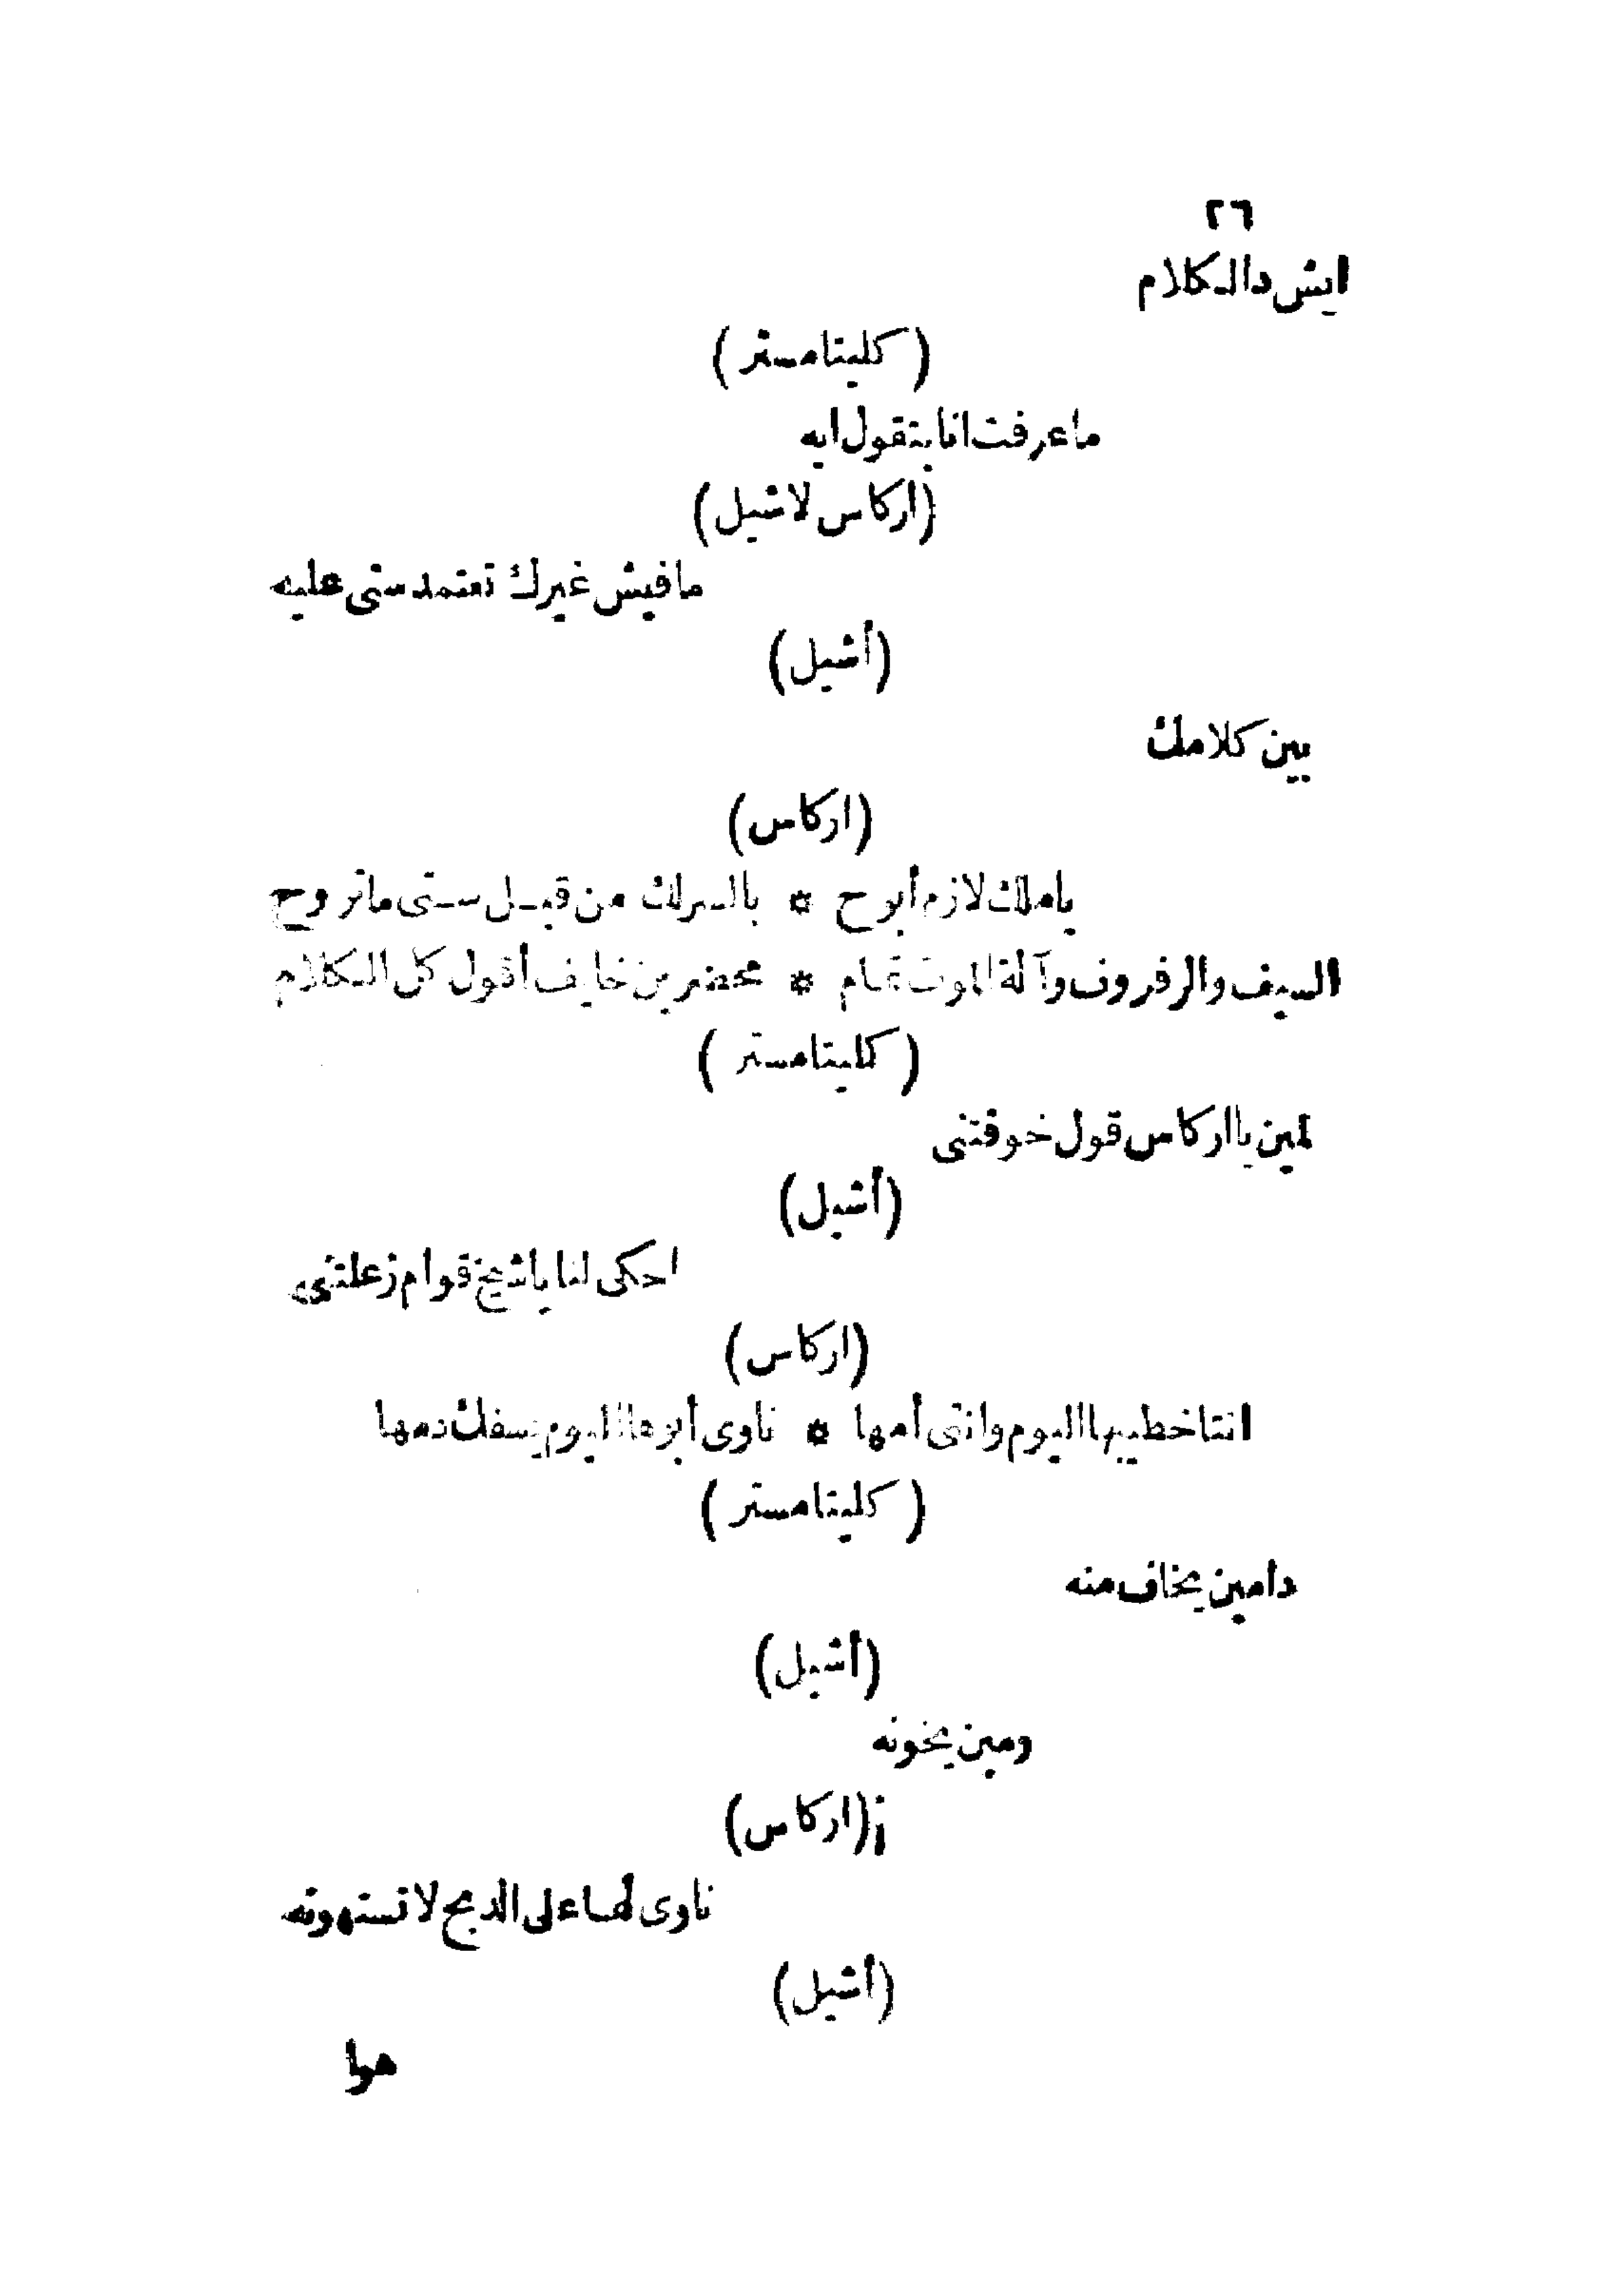 ٢٦
ايش دا الكلام
( كليتامستر )
ما عرفت انا بتقول ايه
(اركاس لاشيل)
مافيش غيرك تعتمد ستى عليه
(أشيل)
بين كلامك
(اركاس)
ياملك لازم أبوح * بالسرلك من قبل ستى ماتروح
السيف والرفروف وآلة الموت تمام * محضرين خايف أقول كل الكلام
( كليتامستر )
لمين يااركاس قول خوفتنى
(أشيل)
احكى لنا ياشيخ قوام زعلتنى
(اركاس)
انتا خطيبها اليوم وانتى أمها * ناوى أبوها اليوم يسفك دمها
( كليتامستر )
دامين يخاف منه
(أشيل)
ومين يخونه
(اركاس)
ناوى لها على الدبح لاتستهونه
(أشيل)
هوا